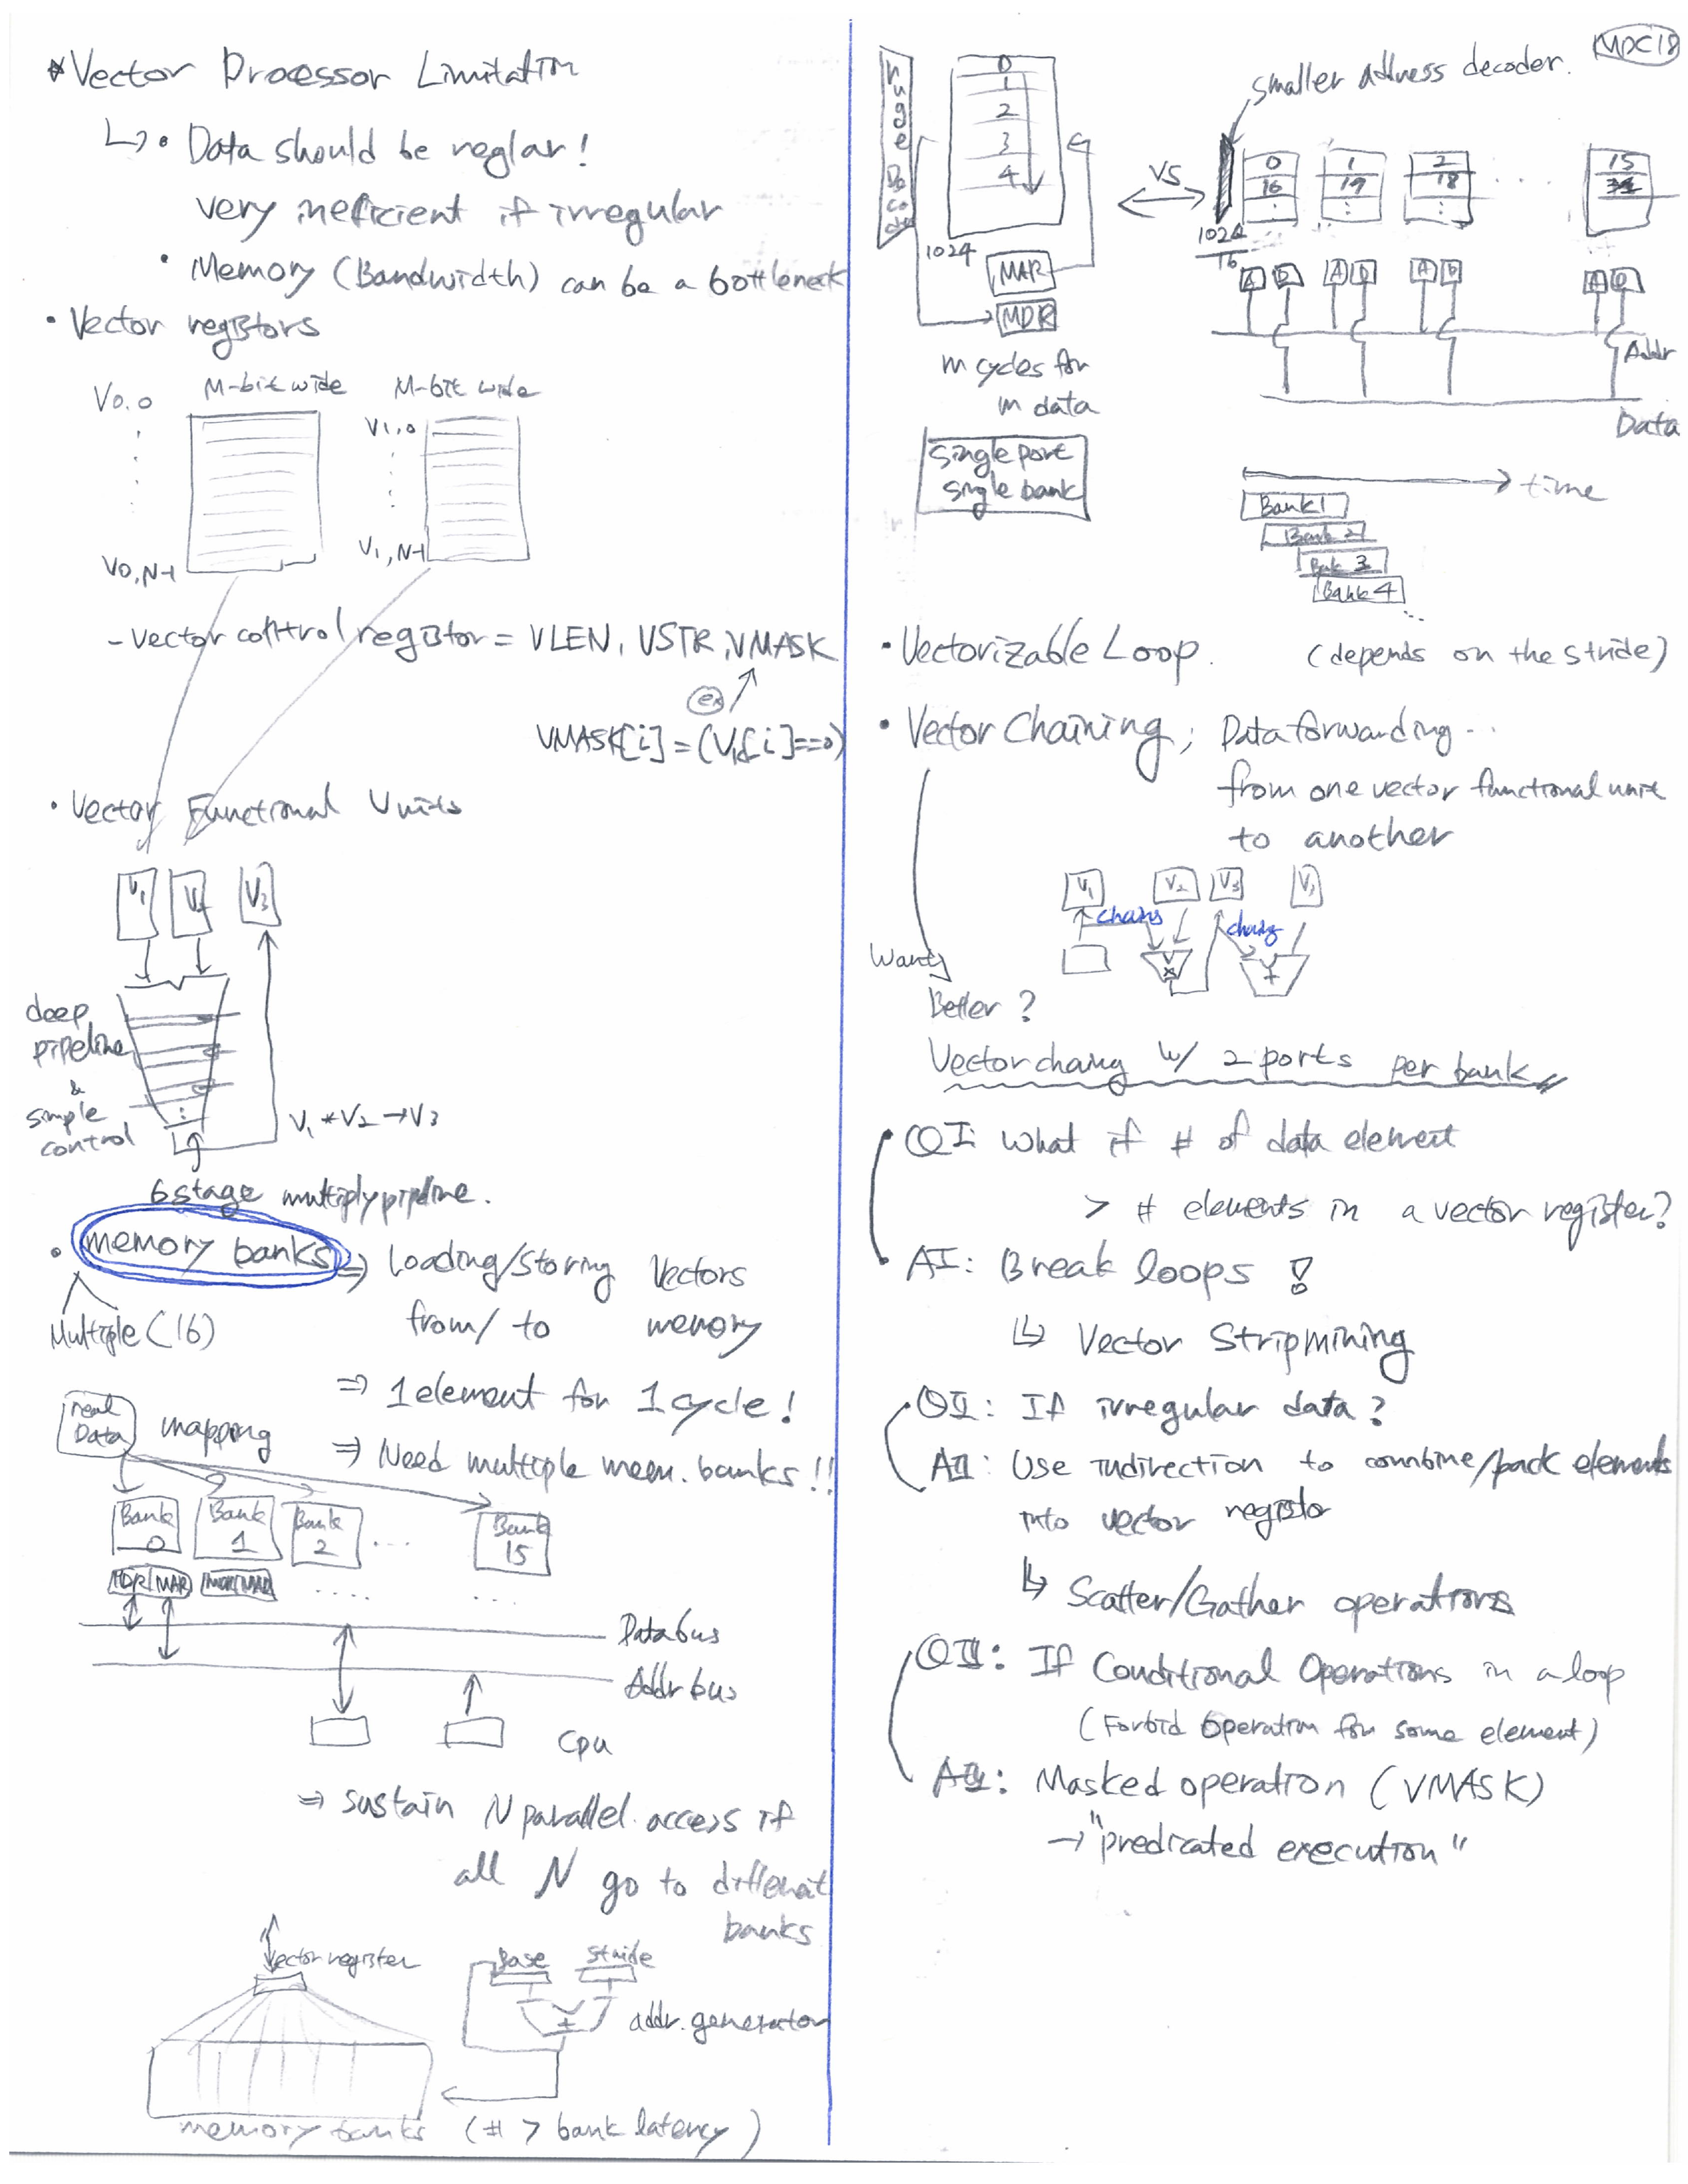 *Vector Processor Limitation
↳ • Data should be reglar!
very ineficient if irregular
• Memory (Bandwidth) can be a bottleneck
• Vector registors
V0,0
M-bit wide
M-bit wide
V1,0
V0,N-1
V1,N-1
- Vector control registor = VLEN, VSTR, VMASK
ex
VMASK[i] = (V1[i]==0)
• Vector Functional Units
V1
V2
V3
deep
pipeline
&
simple
control
V1 * V2 → V3
6 stage multiply pipeline.
• memory banks ⇒ Loading/Storing Vectors
from/to memory
Multiple (16)
⇒ 1 element for 1 cycle!
real
Data
mapping
⇒ Need multiple mem. banks!!
Bank
0
Bank
1
Bank
2
...
Bank
15
MDR MAR
MDR MAR
....
...
Data bus
Addr bus
cpu
⇒ sustain N parallel access if
all N go to different
banks
Vector register
Base
Stride
+
addr. generator
memory banks
(# > bank latency)
MDC18
huge Decoder
0
1
2
3
4
1024
MAR
MDR
m cycles for
m data
single port
single bank
VS
smaller address decoder.
1024
16
0
16
:
1
19
:
2
18
:
...
15
A D
A D
A D
A D
Addr
Data
time
Bank 1
Bank 2
Bank 3
Bank 4
...
• Vectorizable Loop.
(depends on the stride)
• Vector Chaining; Data forwarding ..
from one vector functional unit
to another
V1
V2
V3
chaing
chaing
×
+
Want
Better?
Vector chaing w/ 2 ports per bank
QI: What if # of data element
> # elements in a vector register?
AI: Break loops!
↳ Vector Stripmining
QII: If irregular data?
AII: Use indirection to combine/pack elements
into vector registor
↳ Scatter/Gather operations
QIII: If Conditional Operations in a loop
(Forbid operation for some element)
AIII: Masked operation (VMASK)
→ "predicated execution"